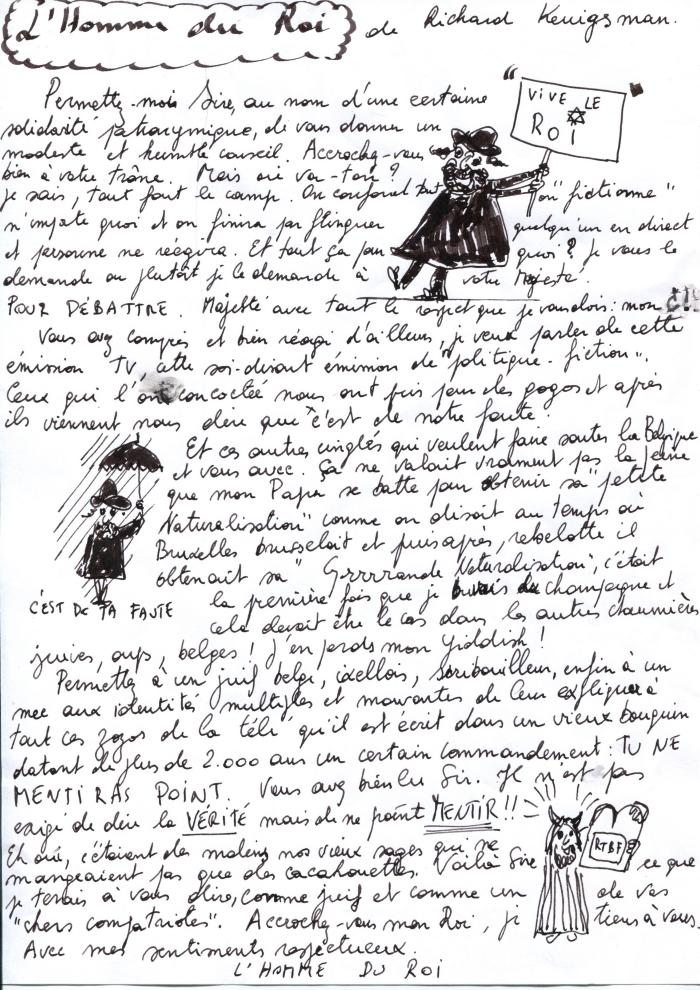 L'Homme du Roi de Richard Kenigsman.
"VIVE LE
ROI"
Permettez-moi Sire, au nom d'une certaine
solidarité patronymique, de vous donner un
modeste et humble conseil. Accrochez-vous
bien à votre trône. Mais où va-t-on ?
Je sais, tout fout le camp. On confond tout on "fictionne"
n'importe quoi et on finira par flinguer quelqu'un en direct
et personne ne réagira. Et tout ça pour quoi ? Je vous le
demande ou plutôt je le demande à votre Majesté.
POUR DÉBATTRE. Majesté avec tout le respect que je vous dois : mon
Vous avez compris et bien réagi d'ailleurs, je veux parler de cette
émission TV, cette soi-disant émission de "politique-fiction".
Ceux qui l'ont concoctée nous ont pris pour des gogos et après
ils viennent nous dire que c'est de notre faute.
Et ces autres cinglés qui veulent faire sauter la Belgique
et vous avec. Ça ne valait vraiment pas la peine
que mon Papa se batte pour obtenir sa "petite
Naturalisation" comme on disait au temps où
Bruxelles brusselait et puis après, rebelotte il
obtenait sa "Grrrrande Naturalisation", c'était
la première fois que je buvais du champagne et
C'EST DE TA FAUTE
cela devait être le cas dans les autres chaumières
juives, oups, belges ! J'en perds mon Yiddish !
Permettez à un juif belge, ixellois, scribouilleur, enfin à un
mec aux identités multiples et mouvantes de leur expliquer à
tout ces zozos de la télé qu'il est écrit dans un vieux bouquin
datant de plus de 2.000 ans un certain commandement : TU NE
MENTIRAS POINT. Vous avez bien lu Sir. Il n'est pas
exigé de dire la VÉRITÉ mais de ne point MENTIR !!
RTBF
Eh oui, c'étaient des malins nos vieux sages qui ne
mangeaient pas que des cacahouettes. Voilà Sire ce que
je tenais à vous dire, comme juif et comme un de vos
"chers compatriotes". Accrochez-vous mon Roi, je tiens à vous.
Avec mes sentiments respectueux.
L'HOMME DU ROI